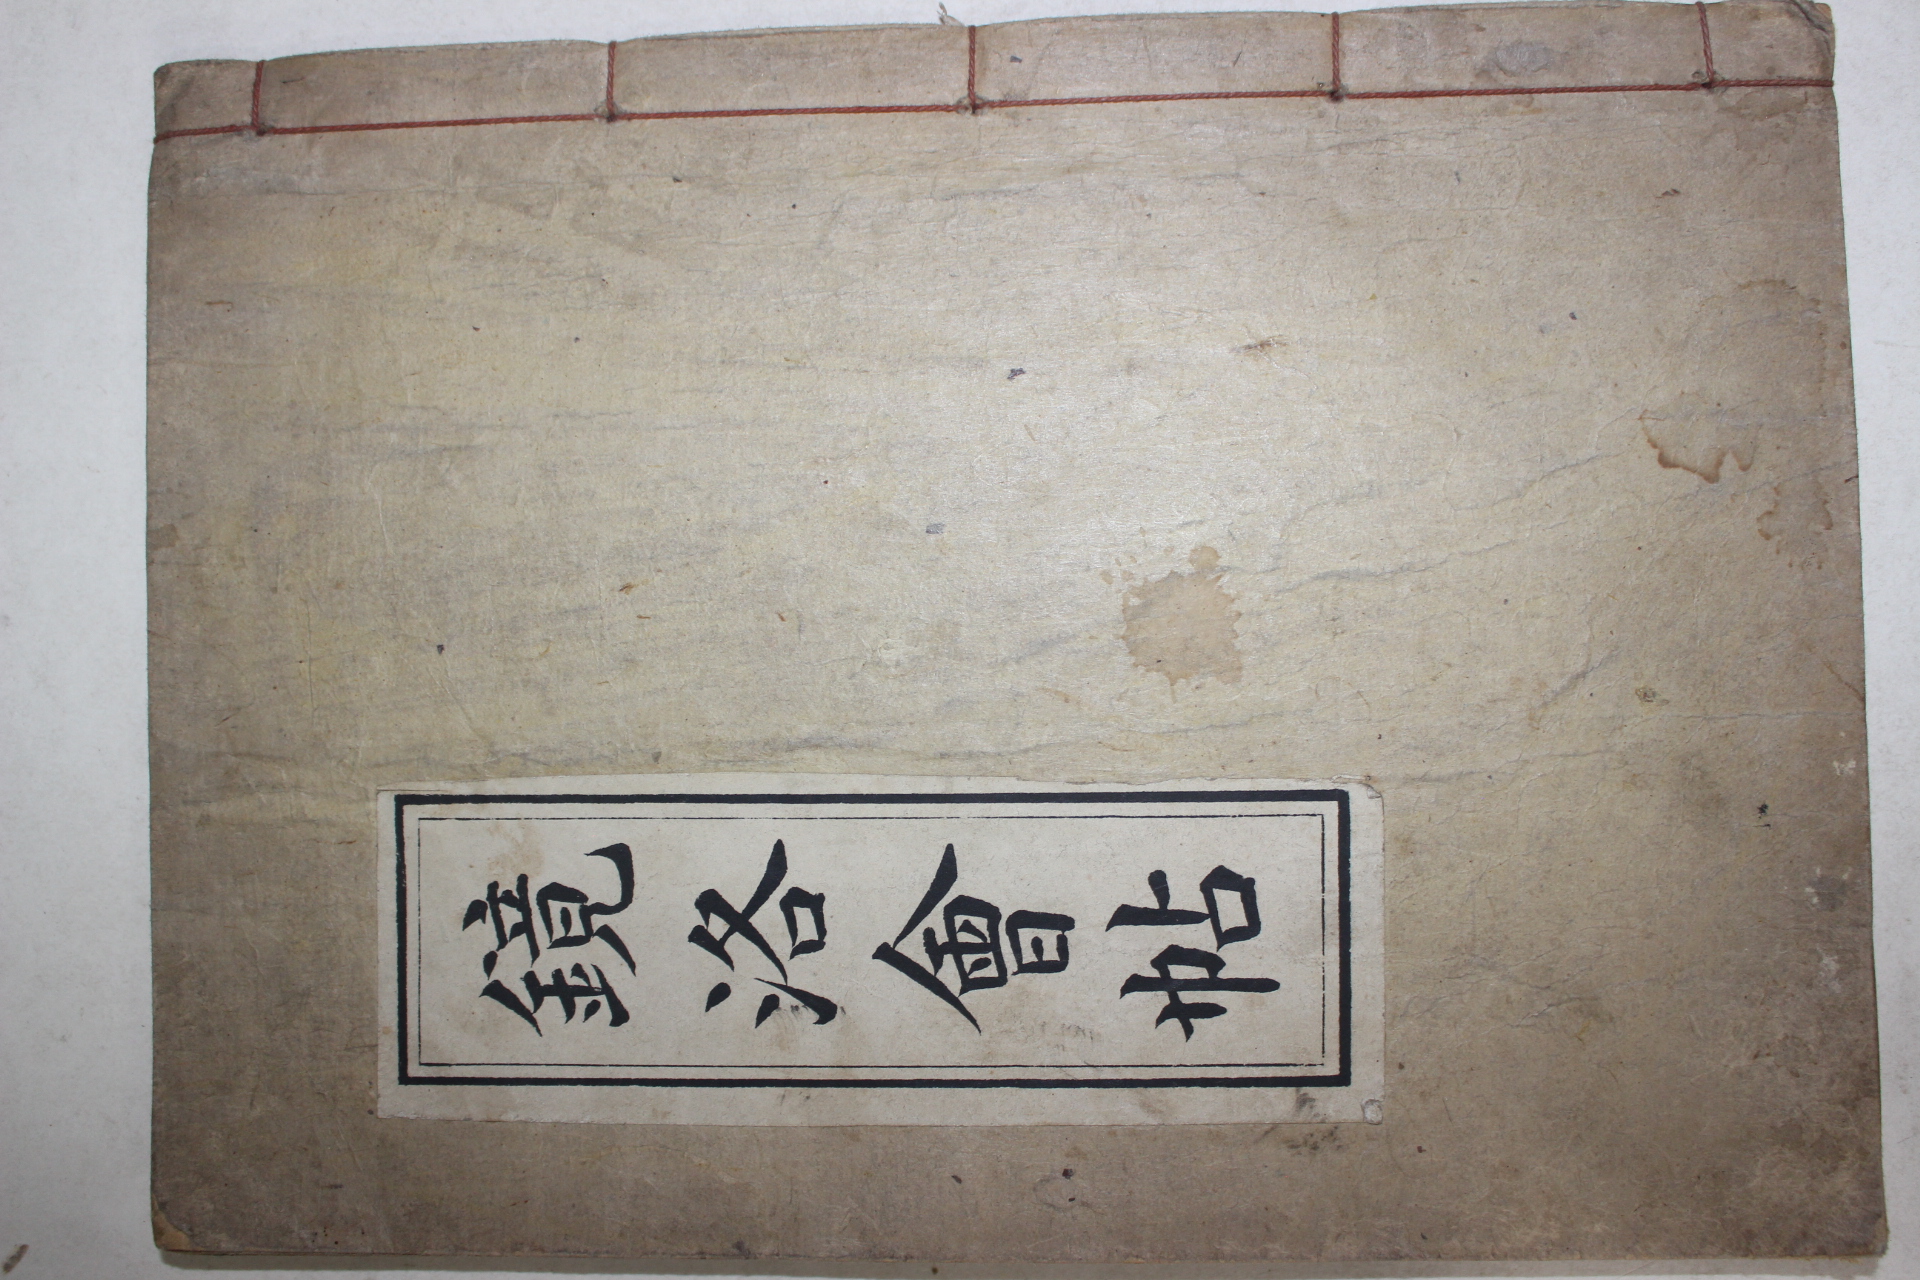 鏡洛會帖